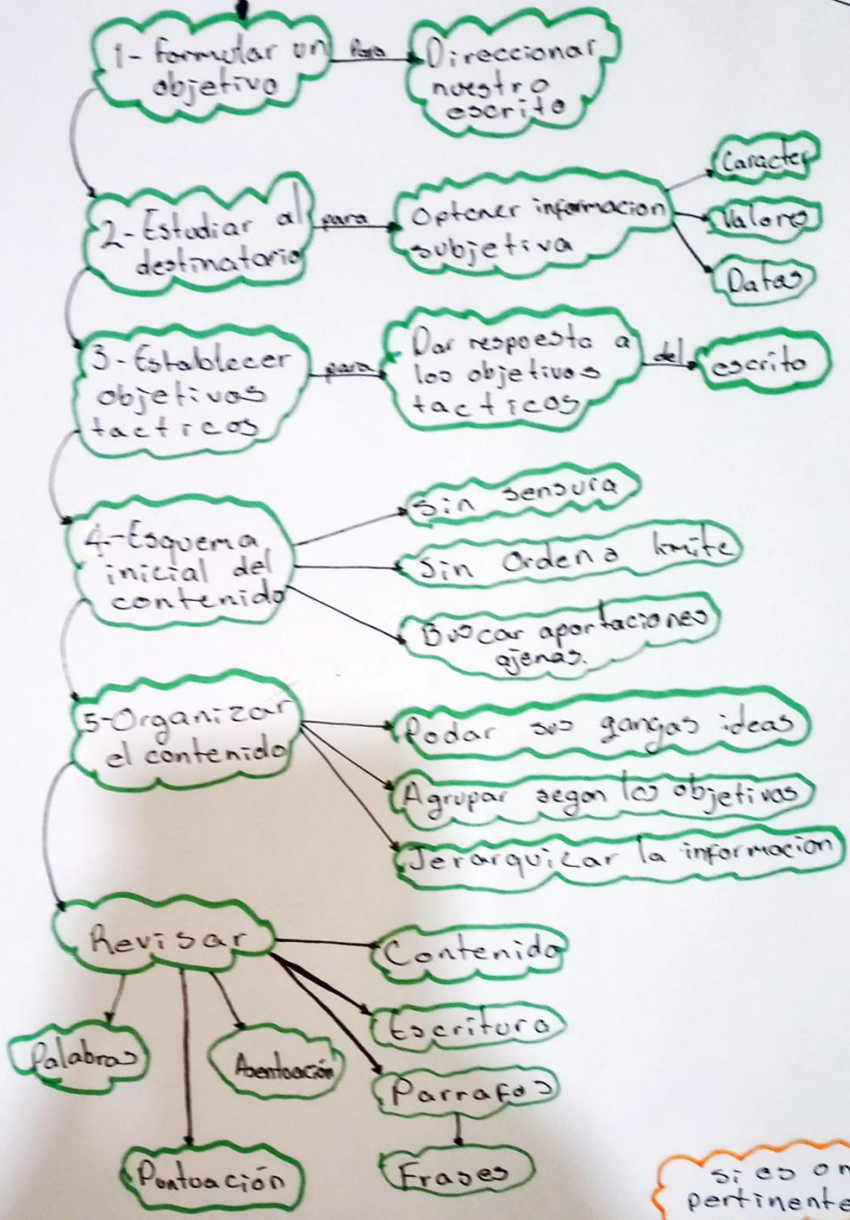 1- formular un
objetivo
Para
Direccionar
nuestro
escrito
2- Estudiar al
destinatario
para
Optener informacion
subjetiva
Caracter
Valores
Datos
3- Establecer
objetivos
tacticos
para
Dar respuesta a
los objetivos
tacticos
del
escrito
4- Esquema
inicial del
contenido
Sin sensura
Sin Orden o limite
Buscar aportaciones
ajenas.
5- Organizar
el contenido
Podar sus gangas ideas
Agrupar segun los objetivos
Jerarquizar la informacion
Revisar
Contenido
Escritura
Parrafos
Frases
Palabras
Puntuación
Asentuación
si es
pertinente